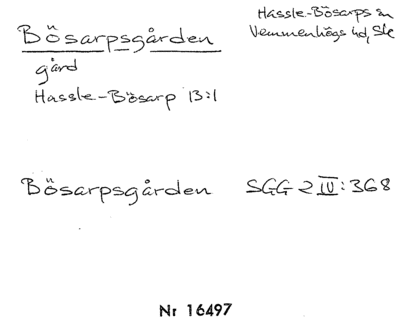 Bösarpsgården
Hassle-Bösarps sn
Vemmenhögs hd, Sk
gård
Hassle-Bösarp 13:1
Bösarpsgården SGG 2 IV:368
Nr 16497